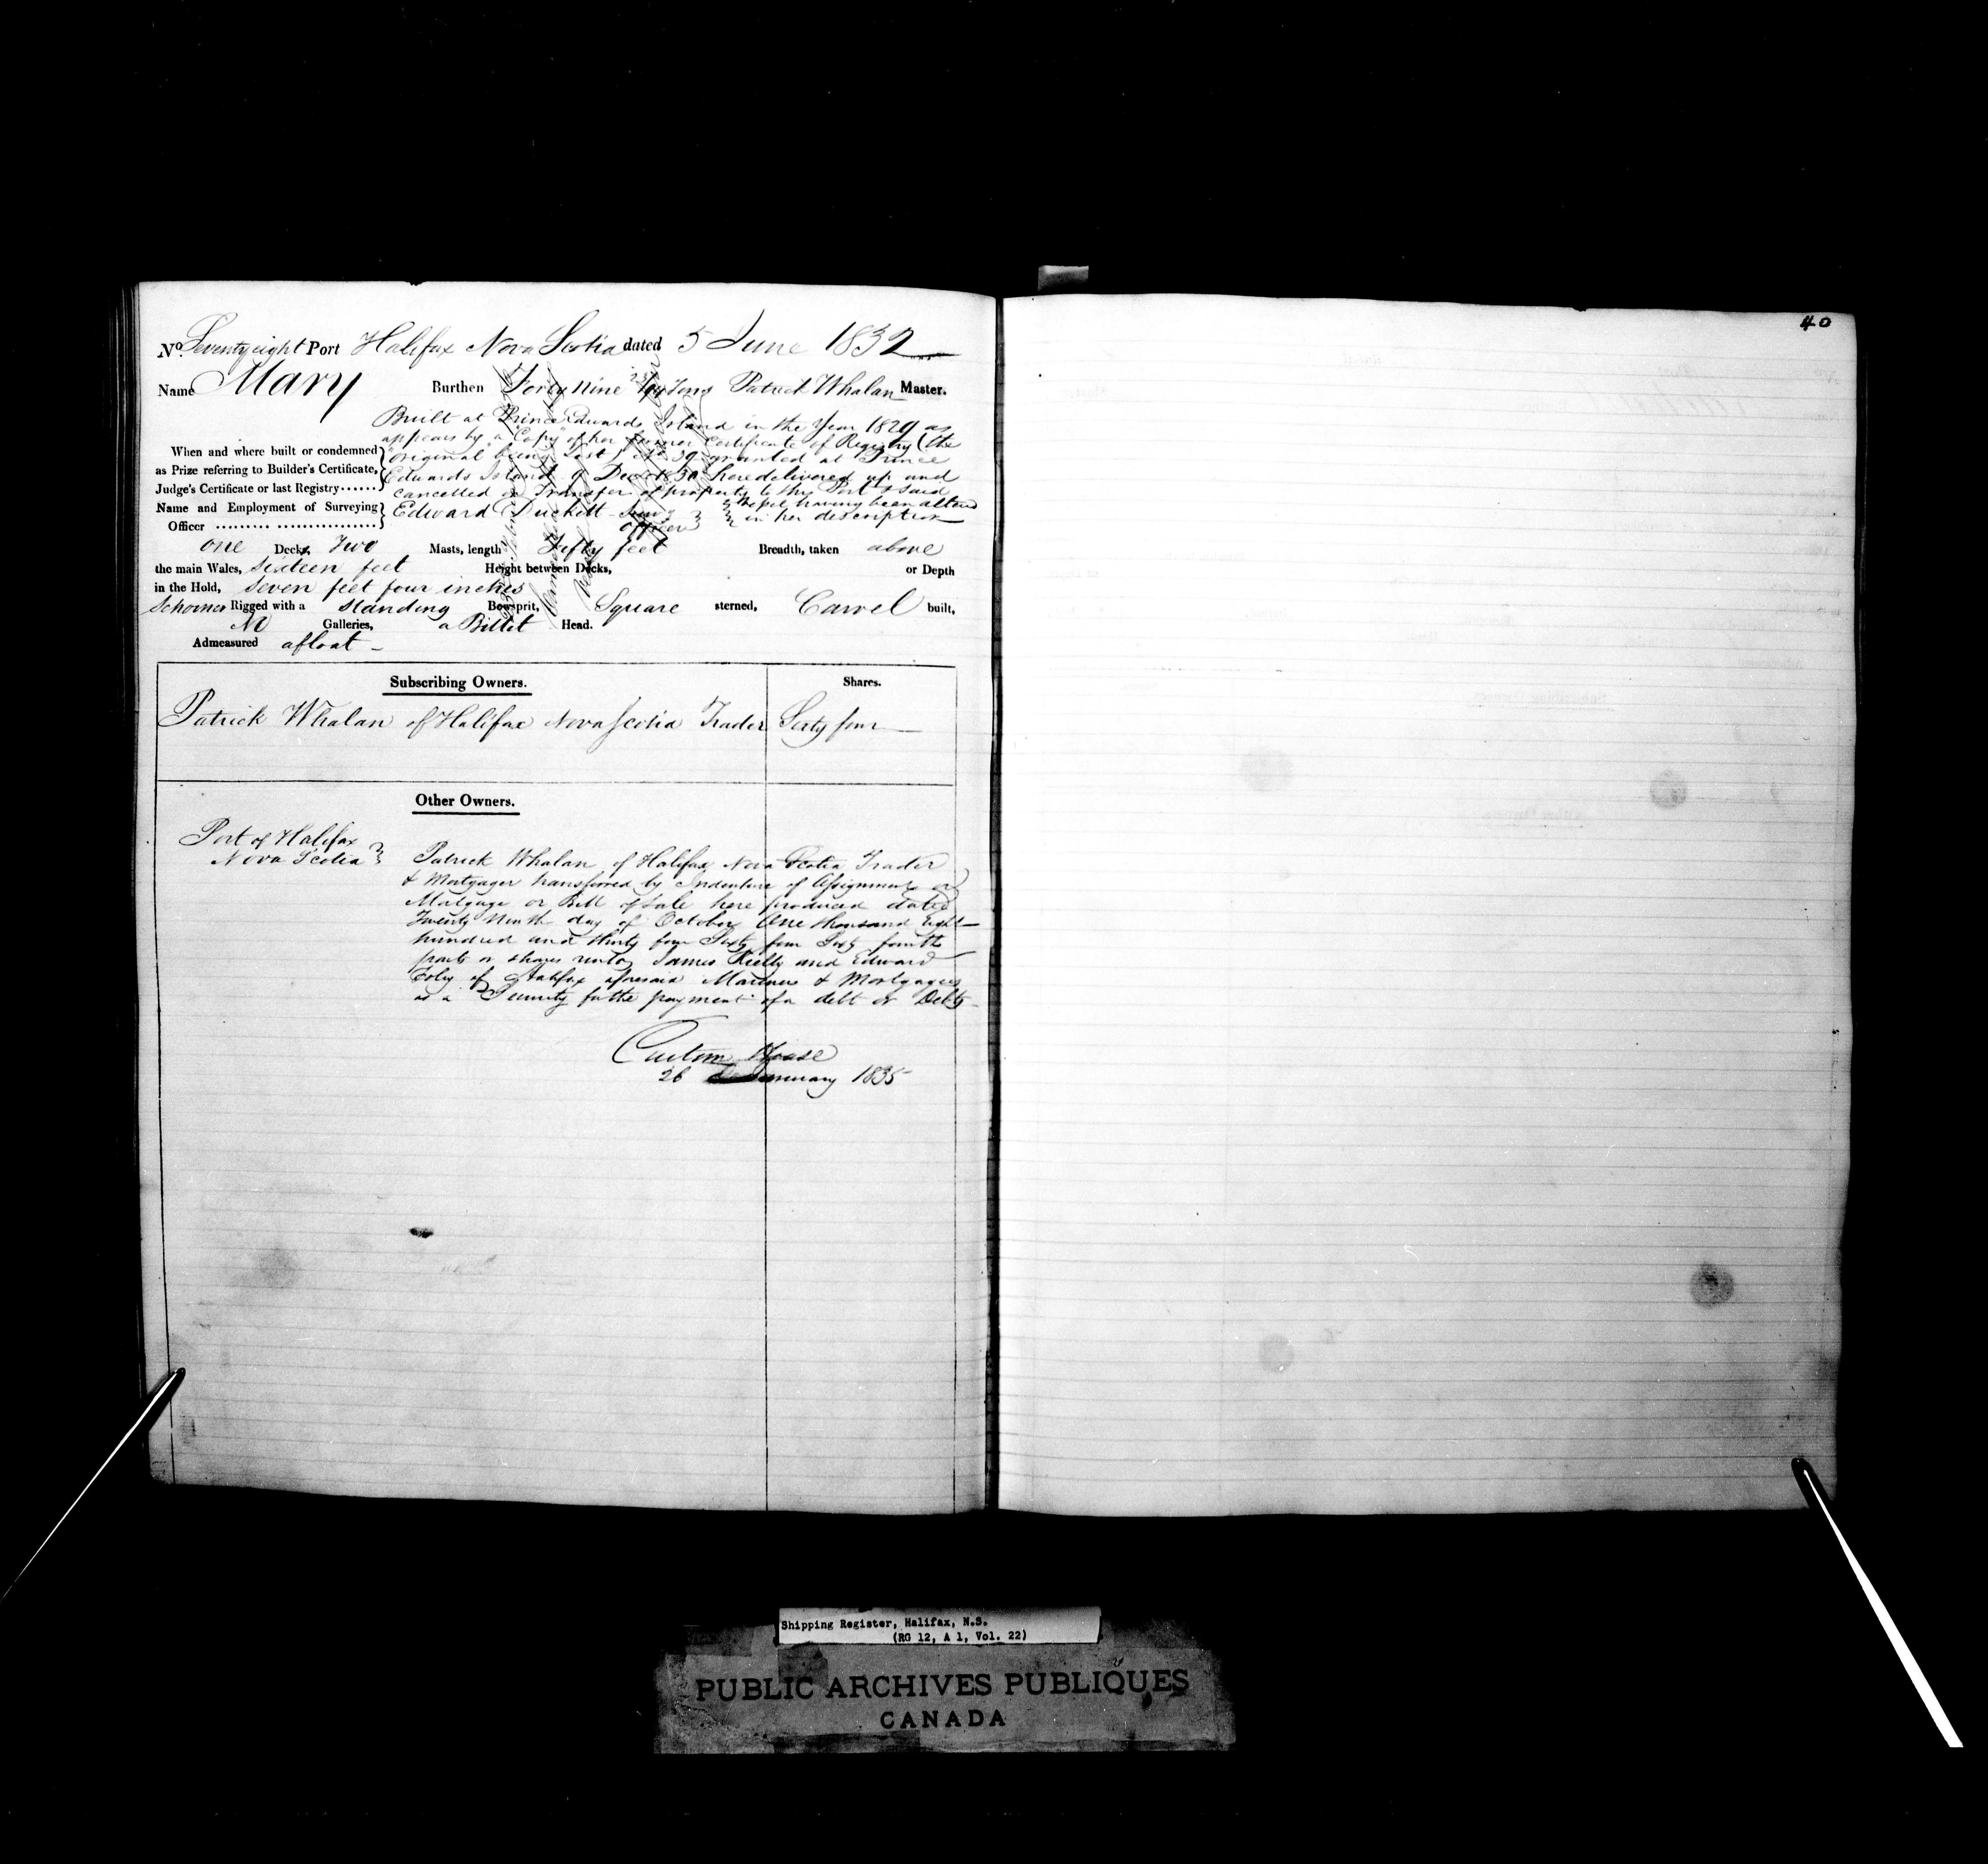 40
No. Seventy eight Port Halifax Nova Scotia dated 5 June 1832
Name Mary Burthen Forty Nine Tons Patrick Whalan Master.
Built at Prince Edwards Island in the Year 1829 as
appears by a "Copy" of her former Certificate of Registry (the
When and where built or condemned
original being lost) No 39 granted at Prince
as Prize referring to Builder's Certificate,
Edwards Island 9 Decr 1830 here delivered up and
Judge's Certificate or last Registry......
cancelled on Transfer of property to this Port & said
Name and Employment of Surveying
Edward Duckett Survg Vessel having been altered
Officer ......... ................
Officer in her description
one Decks, Two Masts, length Fifty feet Breadth, taken above
the main Wales, Sixteen feet Height between Decks, or Depth
in the Hold, Seven feet four inches
Schooner Rigged with a standing Bowsprit, Square sterned, Carvel built,
No Galleries, a Billet Head.
Admeasured afloat
Subscribing Owners. Shares.
Patrick Whalan of Halifax Nova Scotia Trader Sixty four
Other Owners.
Port of Halifax
Nova Scotia
Patrick Whalan of Halifax Nova Scotia Trader
& Mortgager transferred by Indenture of Assignment or
Mortgage or Bill of Sale here produced dated
Twenty Ninth day of October One thousand Eight
hundred and thirty four Sixty four Sixty fourth
parts or shares unto James Kielly and Edward
Foley of Halifax aforesaid Mariners & Mortgagees
as a Security for the payment of a debt or Debts
Custom House
26 January 1835
Shipping Register, Halifax, N.S.
(RG 12, A 1, Vol. 22)
PUBLIC ARCHIVES PUBLIQUES
CANADA